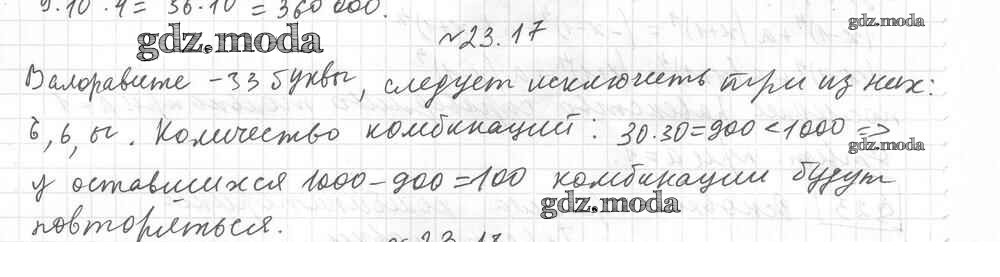 9·10·4= 36·10 = 360 000.
gdz.moda
gdz.moda
№23.17
В алфавите -33 буквы, следует исключить три из них:
ъ, ь, ы. Количество комбинаций: 30·30=900<1000 =>
gdz.moda
у оставшихся 1000-900=100 комбинации будут
gdz.moda
повторяться.
gdz.moda
№23.18